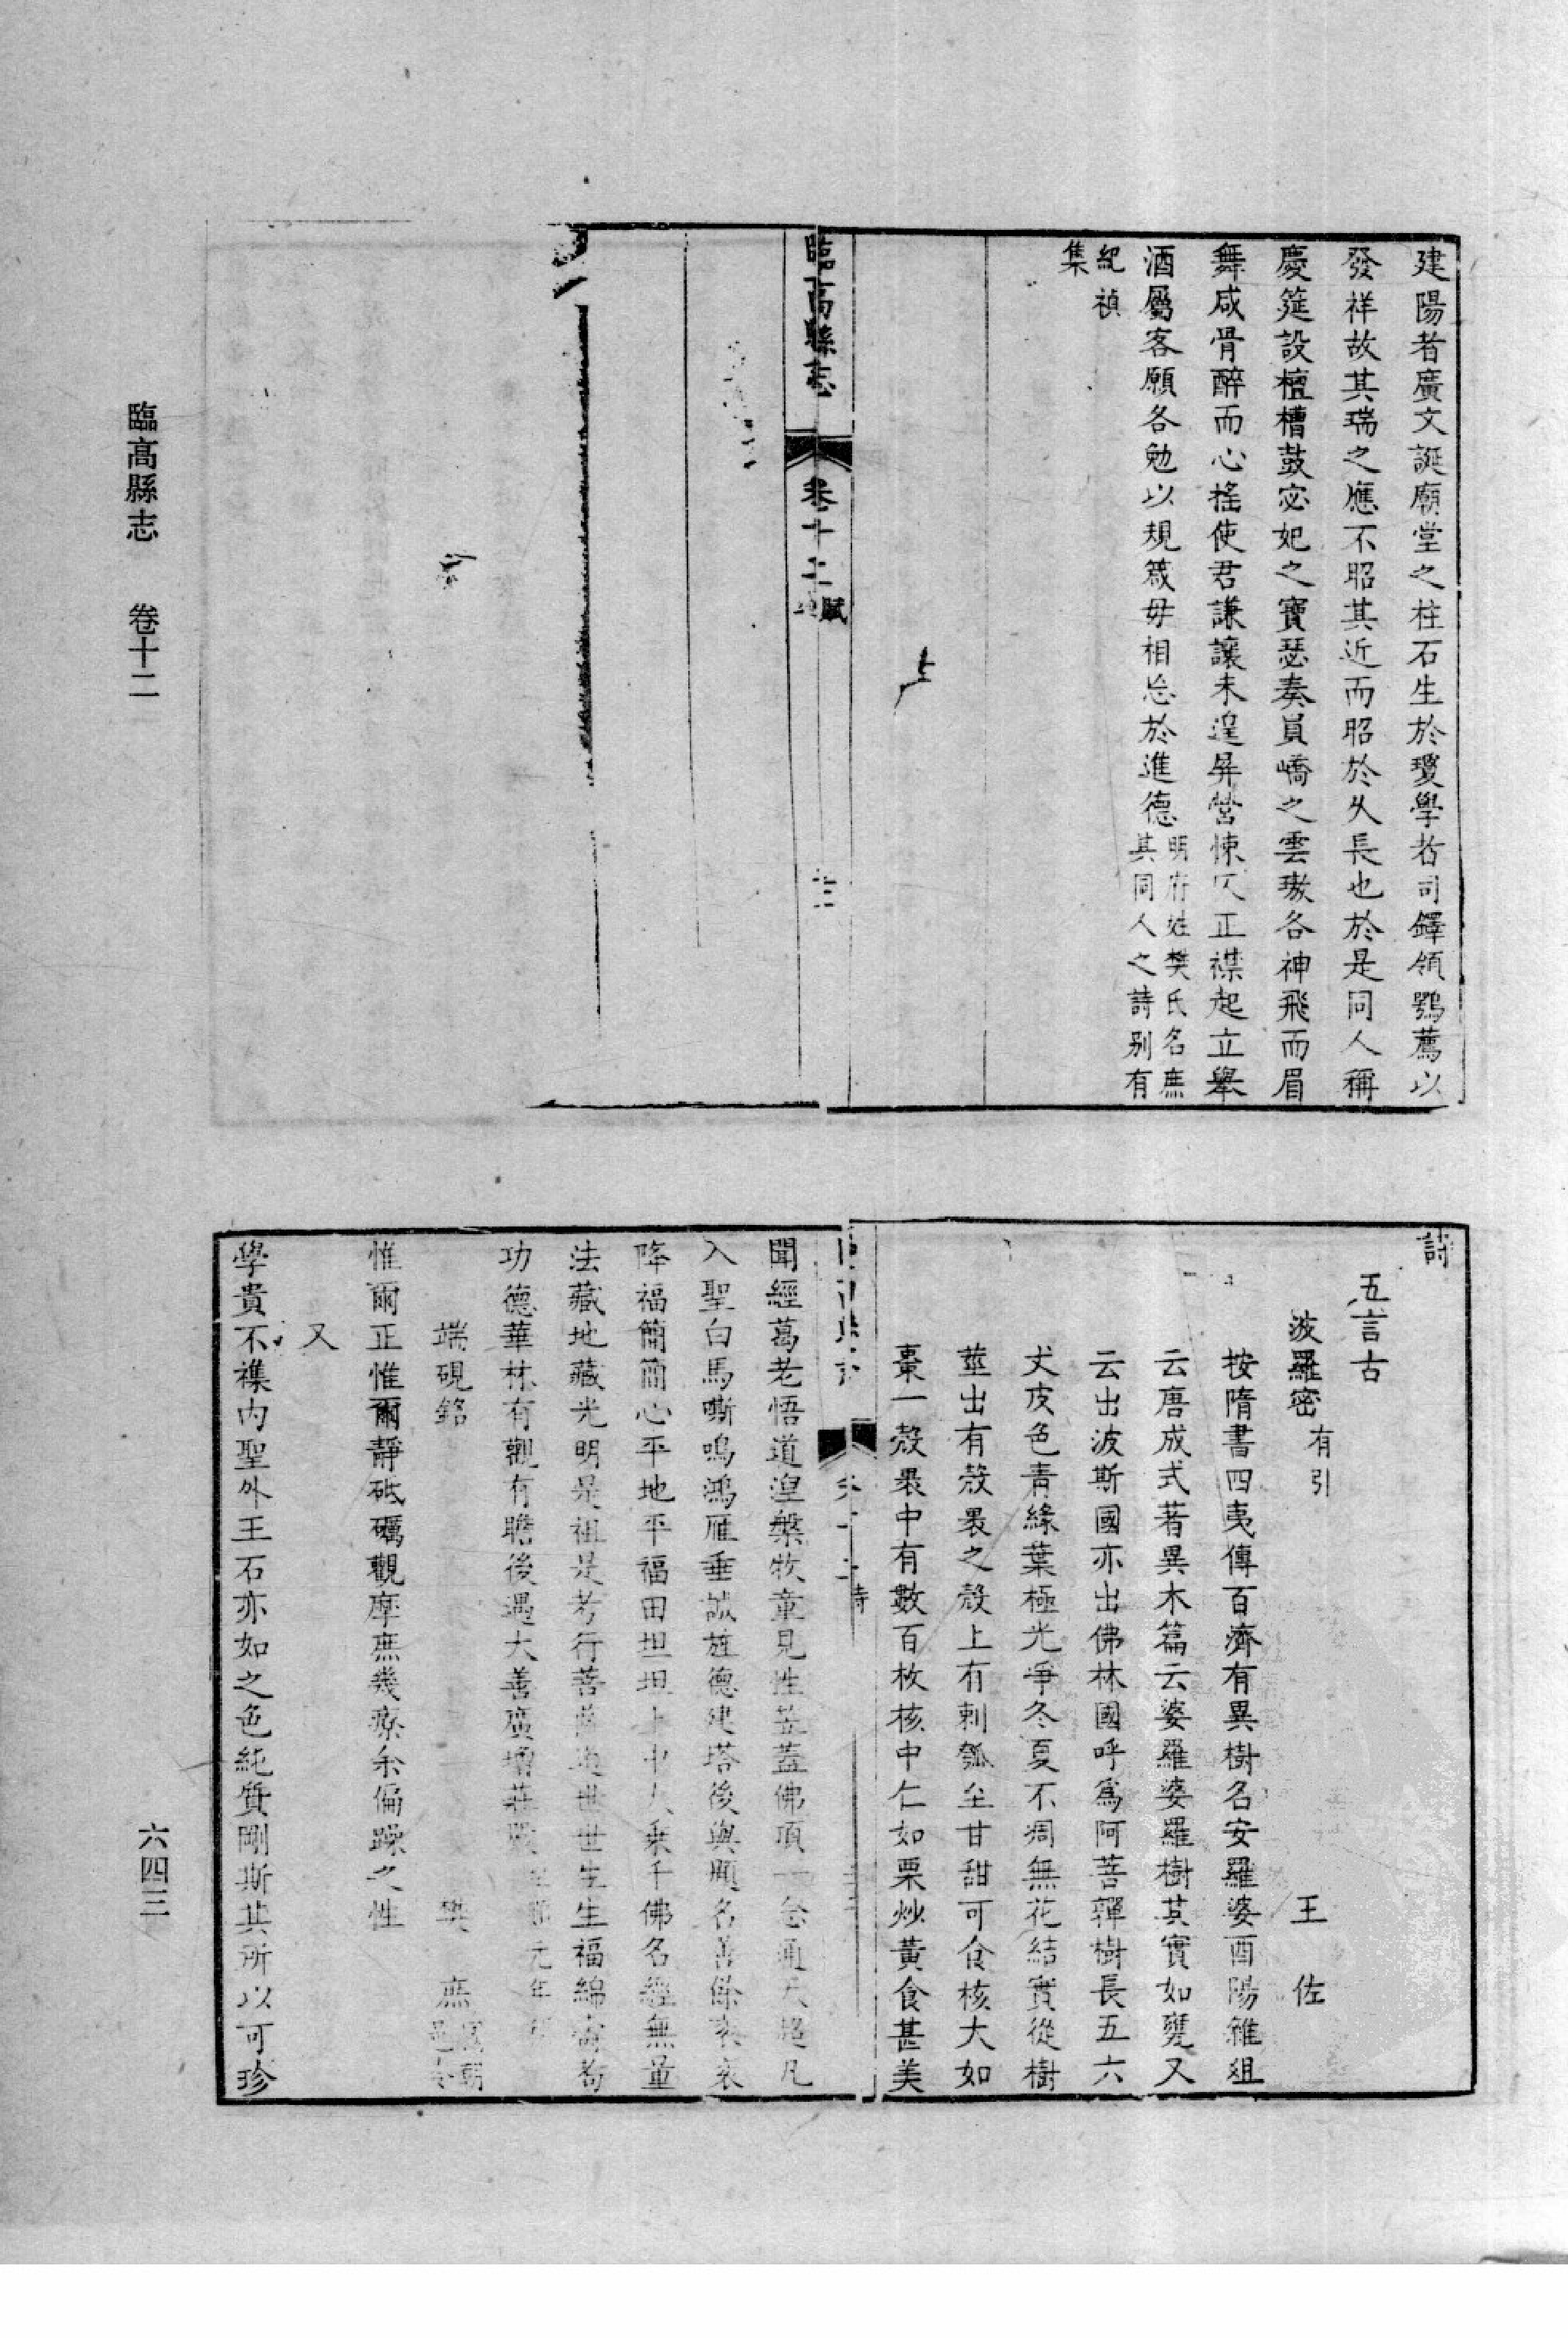 建陽者廣文誕廟堂之柱石生於瓊學者司鐸領鶚薦以
發祥故其瑞之應不昭其近而昭於久長也於是同人稱
慶筵設檀槽鼓宓妃之寶瑟奏員嶠之雲璈各神飛而眉
舞咸骨醉而心搖使君謙讓未遑屏營悚仄正襟起立舉
酒屬客願各勉以規箴毋相忘於進德
明府姓樊氏名庶
其同人之詩別有
紀禎
集
臨高縣志
卷十二
賦
詩
五言古
波羅密
有引
王佐
按隋書四夷傳百濟有異樹名安羅婆酉陽雜俎
云唐成式著異木篇云婆羅婆羅樹其實如甕又
云出波斯國亦出佛林國呼為阿菩彈樹長五六
丈皮色青綠葉極光爭冬夏不凋無花結實從樹
莖出有殼裹之殼上有刺瓠至甘甜可食核大如
棗一殼裹中有數百枚核中仁如栗炒黃食甚美
詩
聞經葛老悟道湼槃牧童見性蓋佛項一念通天超凡
入聖白馬嘶鳴鴻雁垂誠旌德建塔後與顯名善
降福簡簡心平地平福田坦坦上中大乘千佛名經無量
法藏地藏光明是祖是考行菩薩道世世生生福綿
功德華林有觀有瞻後遇大善廣增莊嚴
元年
端硯銘
樊庶
惟爾正惟爾靜砥礪觀摩庶幾療余偏躁之性
又
學貴不襍內聖外王石亦如之色純質剛斯其所以可珍
臨高縣志
卷十二
六四三